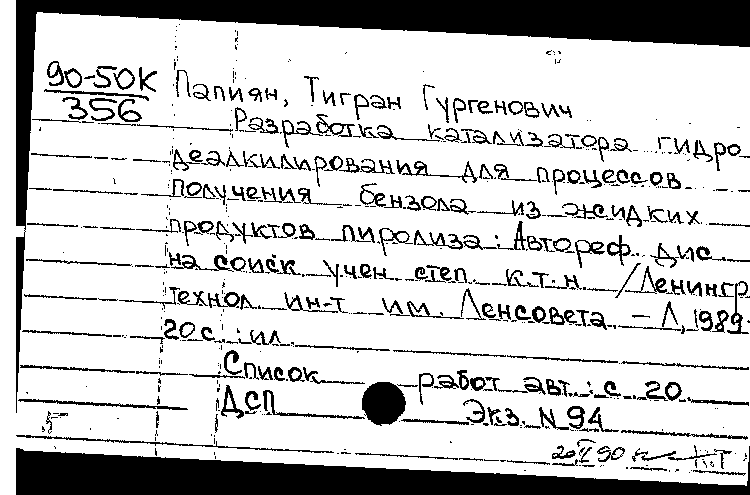 90-50К
356
Папиян, Тигран Гургенович
Разработка катализатора гидро
деалкилирования для процессов
получения бензола из жидких
продуктов пиролиза: Автореф. дис.
на соиск. учен. степ. к.т.н. /Ленингр.
технол. ин-т им. Ленсовета. – Л., 1989.
20 с. : ил.
Список работ авт.: с. 20.
ДСП Экз. N 94
5
90 К.Т